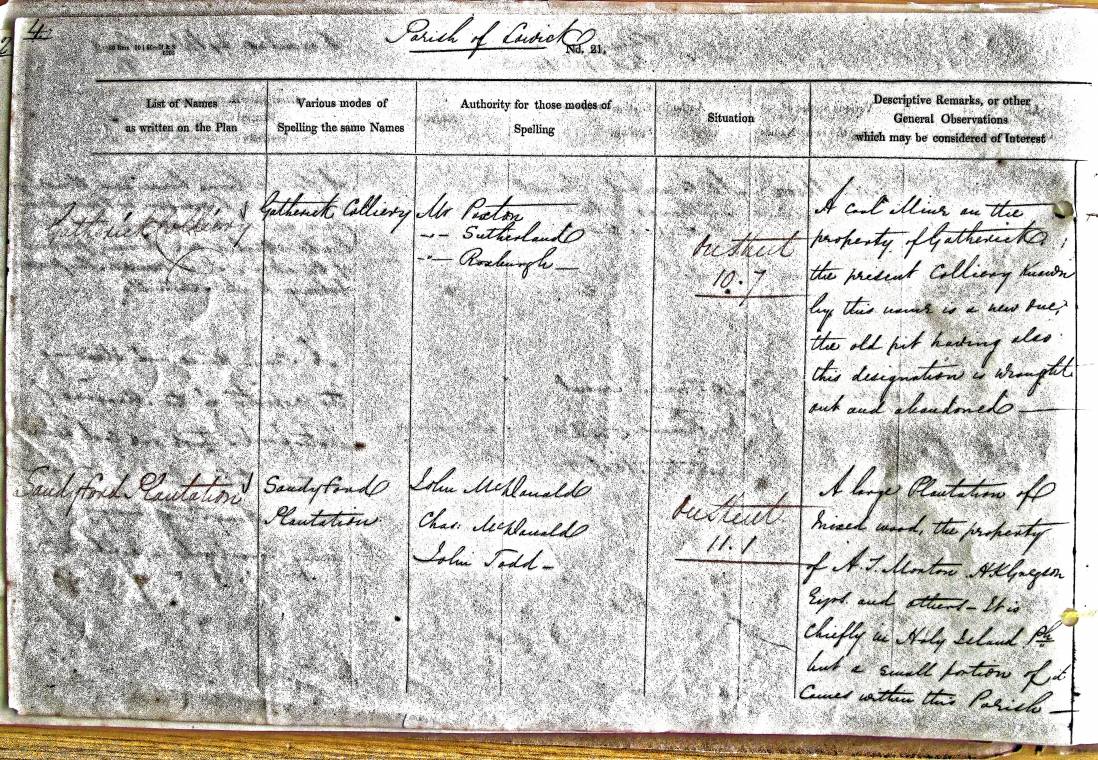 4
Parish of Lowick
No. 21.
List of Names
as written on the Plan
Various modes of
Spelling the same Names
Authority for those modes of
Spelling
Situation
Descriptive Remarks, or other
General Observations
which may be considered of Interest
Gatherick Colliery
Gatherick Colliery
Mr Paxton
" — Sutherland
" — Roxburgh —
On Sheet
10.7
A coal Mine on the
property of Gatherick;
the present Colliery known
by this name is a new one,
the old pit having also
this designation is wrought
out and abandoned —
Sandyford Plantation
Sandyford
Plantation
John McDonald
Chas: McDonald
John Todd —
On Sheet
11.1
A large Plantation of
mixed wood, the property
of A. T. Morton H K Gregson
Esqrs. and others — It is
chiefly in Holy Island Ph
but a small portion of it
comes within this Parish —